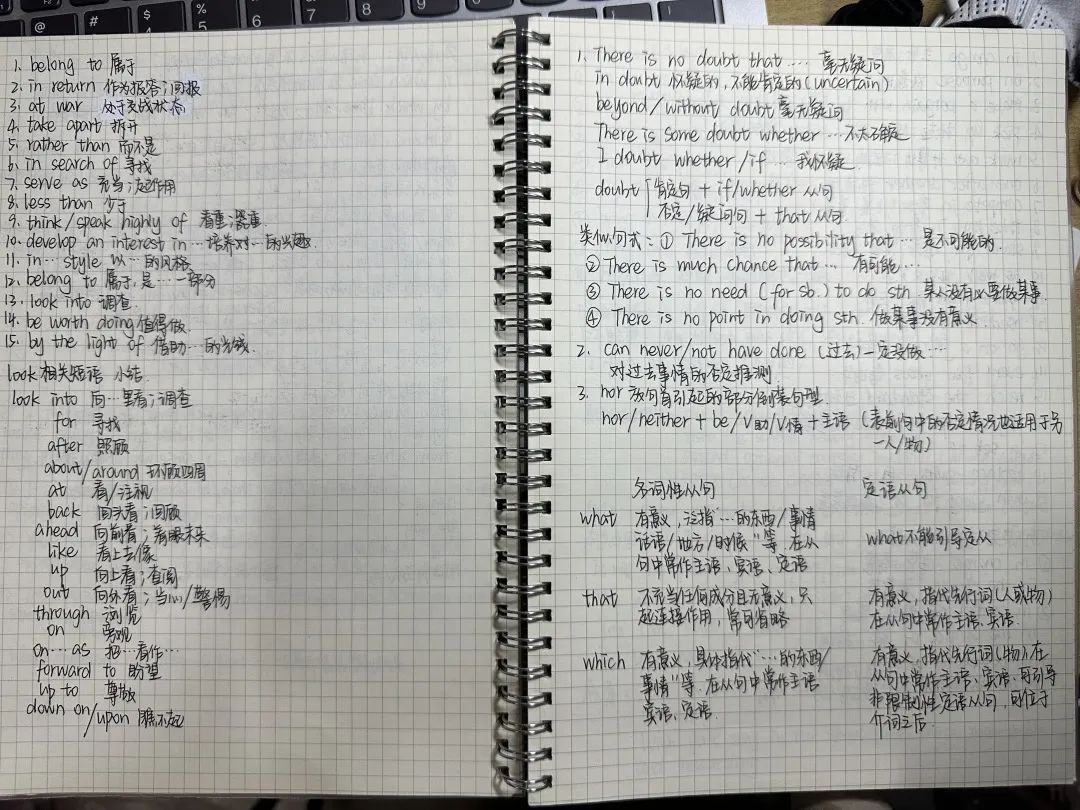 1. belong to 属于
2. in return 作为报答；回报
3. at war 处于交战状态
4. take apart 拆开
5. rather than 而不是
6. in search of 寻找
7. serve as 充当；起作用
8. less than 少于
9. think/speak highly of 看重；器重
10. develop an interest in… 培养对…的兴趣
11. in… style 以…的风格
12. belong to 属于，是…一部分
13. look into 调查
14. be worth doing 值得做
15. by the light of 借助…的光线
look 相关短语 小结
look into 向…里看；调查
for 寻找
after 照顾
about/around 环顾四周
at 看/注视
back 回头看；回顾
ahead 向前看；着眼未来
like 看上去像
up 向上看；查阅
out 向外看；当心/警惕
through 浏览
on 旁观
on…as 把…看作…
forward to 盼望
up to 尊敬
down on/upon 瞧不起
1. There is no doubt that … 毫无疑问
in doubt 怀疑的，不能肯定的(uncertain)
beyond/without doubt 毫无疑问
There is some doubt whether …不太确定
I doubt whether/if … 我怀疑
doubt 肯定句 + if/whether 从句
否定/疑问句 + that 从句
类似句式：① There is no possibility that … 是不可能的
② There is much chance that … 有可能…
③ There is no need (for sb.) to do sth 某人没有必要做某事
④ There is no point in doing sth. 做某事没有意义
2. can never/not have done (过去)一定没做…
对过去事情的否定推测
3. nor 放句首引起的部分倒装句型
nor/neither + be/V助/V情 + 主语 (表前句中的否定情况也适用于另
一人/物)
名词性从句 定语从句
what 有意义，泛指“…的东西/事情
话语/地方/时候”等，在从 what不能引导定从
句中常作主语、宾语、定语
that 不充当任何成分且无意义，只 有意义，指代先行词(人或物)
起连接作用，常可省略 在从句中常作主语、宾语
which 有意义，具体指代“…的东西/ 有意义，指代先行词(物)在
事情”等，在从句中常作主语 从句中常作主语、宾语，可引导
宾语、定语 非限制性定语从句，可位于
介词之后